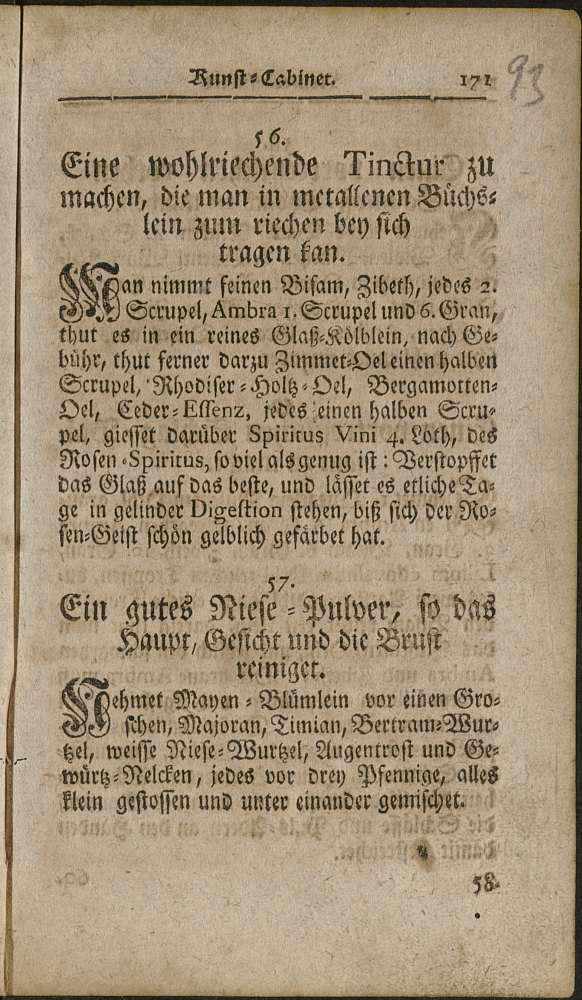 Kunst=Cabinet. 171
93
56.
Eine wohlriechende Tinctur zu
machen, die man in metallenen Büchs=
lein zum riechen bey sich
tragen kan.
Man nimmt feinen Bisam, Zibeth, jedes 2.
Scrupel, Ambra 1. Scrupel und 6. Gran,
thut es in ein reines Glaß=Kölblein, nach Ge=
bühr, thut ferner darzu Zimmet=Oel einen halben
Scrupel, Rhodiser=Holtz=Oel, Bergamotten=
Oel, Ceder=Essenz, jedes einen halben Scru=
pel, giesset darüber Spiritus Vini 4. Loth, des
Rosen=Spiritus, so viel als genug ist: Verstopffet
das Glaß auf das beste, und lässet es etliche Ta=
ge in gelinder Digestion stehen, biß sich der Ro=
sen=Geist schön gelblich gefärbet hat.
57.
Ein gutes Niese=Pulver, so das
Haupt, Gesicht und die Brust
reiniget.
Nehmet Mayen=Blümlein vor einen Gro=
schen, Majoran, Timian, Bertram=Wur=
tzel, weisse Niese=Wurtzel, Augentrost und Ge=
würtz=Nelcken, jedes vor drey Pfennige, alles
klein gestossen und unter einander gemischet.
58.